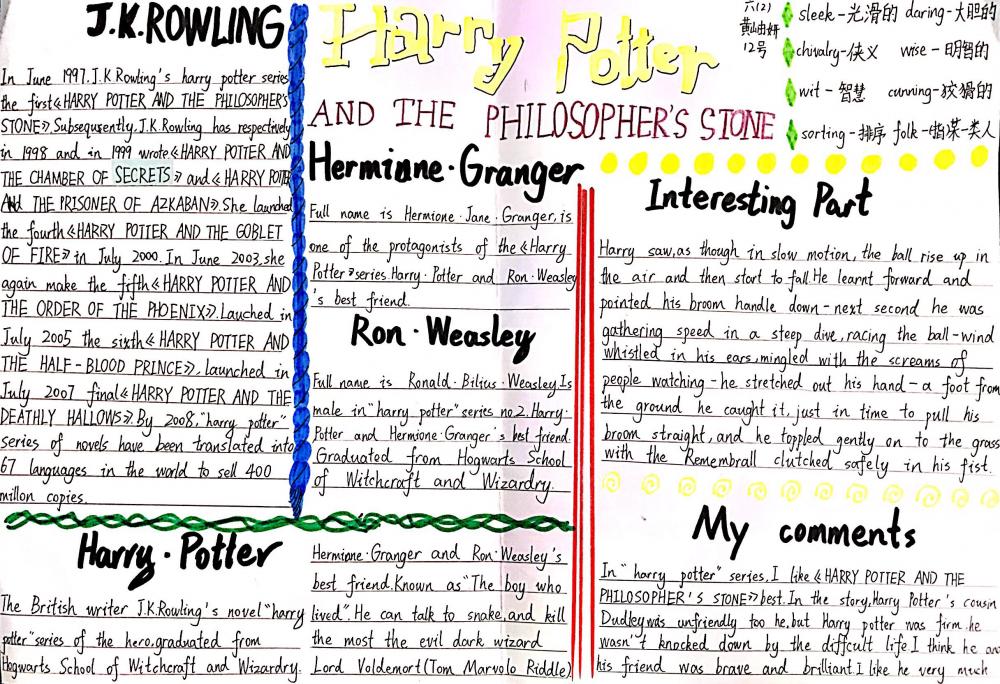 Harry Potter
AND THE PHILOSOPHER'S STONE
六(2)
12号
sleek-光滑的 daring-大胆的
chivalry-侠义 wise-明智的
wit-智慧 cunning-狡猾的
sorting-排序 folk-指某一类人
J.K.ROWLING
In June 1997.J.K.Rowling's harry potter series
the first《HARRY POTTER AND THE PHILOSOPHER'S
STONE》.Subsequently,J.K.Rowling has respectively
in 1998 and in 1999 wrote《HARRY POTTER AND
THE CHAMBER OF SECRETS》and《HARRY POTTER
AND THE PRISONER OF AZKABAN》.She launched
the fourth《HARRY POTTER AND THE GOBLET
OF FIRE》in July 2000. In June 2003,she
again make the fifth《HARRY POTTER AND
THE ORDER OF THE PHOENIX》.Lauched in
July 2005 the sixth《HARRY POTTER AND
THE HALF-BLOOD PRINCE》, launched in
July 2007 final《HARRY POTTER AND THE
DEATHLY HALLOWS》.By 2008,"harry potter"
series of novels have been translated into
67 languages in the world to sell 400
millon copies.
Hermione·Granger
Full name is Hermione·Jane·Granger,is
one of the protagonists of the《Harry
Potter》series.Harry·Potter and Ron·Weasley
's best friend.
Ron·Weasley
Full name is Ronald·Bilius·Weasley.Is
male in"harry potter"series no.2.Harry·
Potter and Hermione·Granger's best friend.
Graduated from Hogwarts School
of Witchcraft and Wizardry.
Harry·Potter
The British writer J.K.Rowling's novel"harry
potter"series of the hero.graduated from
Hogwarts School of Witchcraft and Wizardry.
Hermione·Granger and Ron·Weasley's
best friend.Known as"The boy who
lived".He can talk to snake,and kill
the most the evil dark wizard
Lord Voldemort(Tom Marvolo Riddle)
Interesting Part
Harry saw,as though in slow motion,the ball rise up in
the air and then start to fall.He learnt forward and
pointed his broom handle down-next second he was
gathering speed in a steep dive,racing the ball-wind
whistled in his ears,mingled with the screams of
people watching-he stretched out his hand-a foot from
the ground he caught it,just in time to pull his
broom straight,and he toppled gently on to the grass
with the Remembrall clutched safely in his fist.
My comments
In"harry potter"series,I like《HARRY POTTER AND THE
PHILOSOPHER'S STONE》best.In the story,Harry Potter's cousin
Dudley was unfriendly too he,but Harry potter was firm.he
wasn't knocked down by the diffcult life.I think he and
his friend was brave and brilliant.I like he very much